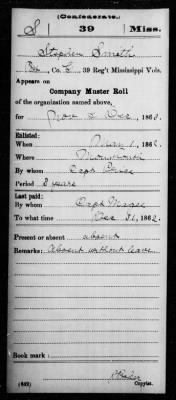 (Confederate.)
S 39 Miss.
Stephen Smith
Co. C, 39 Reg't Mississippi Vols.
Appears on
Company Muster Roll
of the organization named above,
for Nov & Dec, 186
Enlisted:
When May 1, 186
Where
By whom Capt
Period 3 years
Last paid:
By whom Capt
To what time Dec 31, 1862.
Present or absent absent
Remarks: Absent without leave
Book mark:
(642)
Copyist.